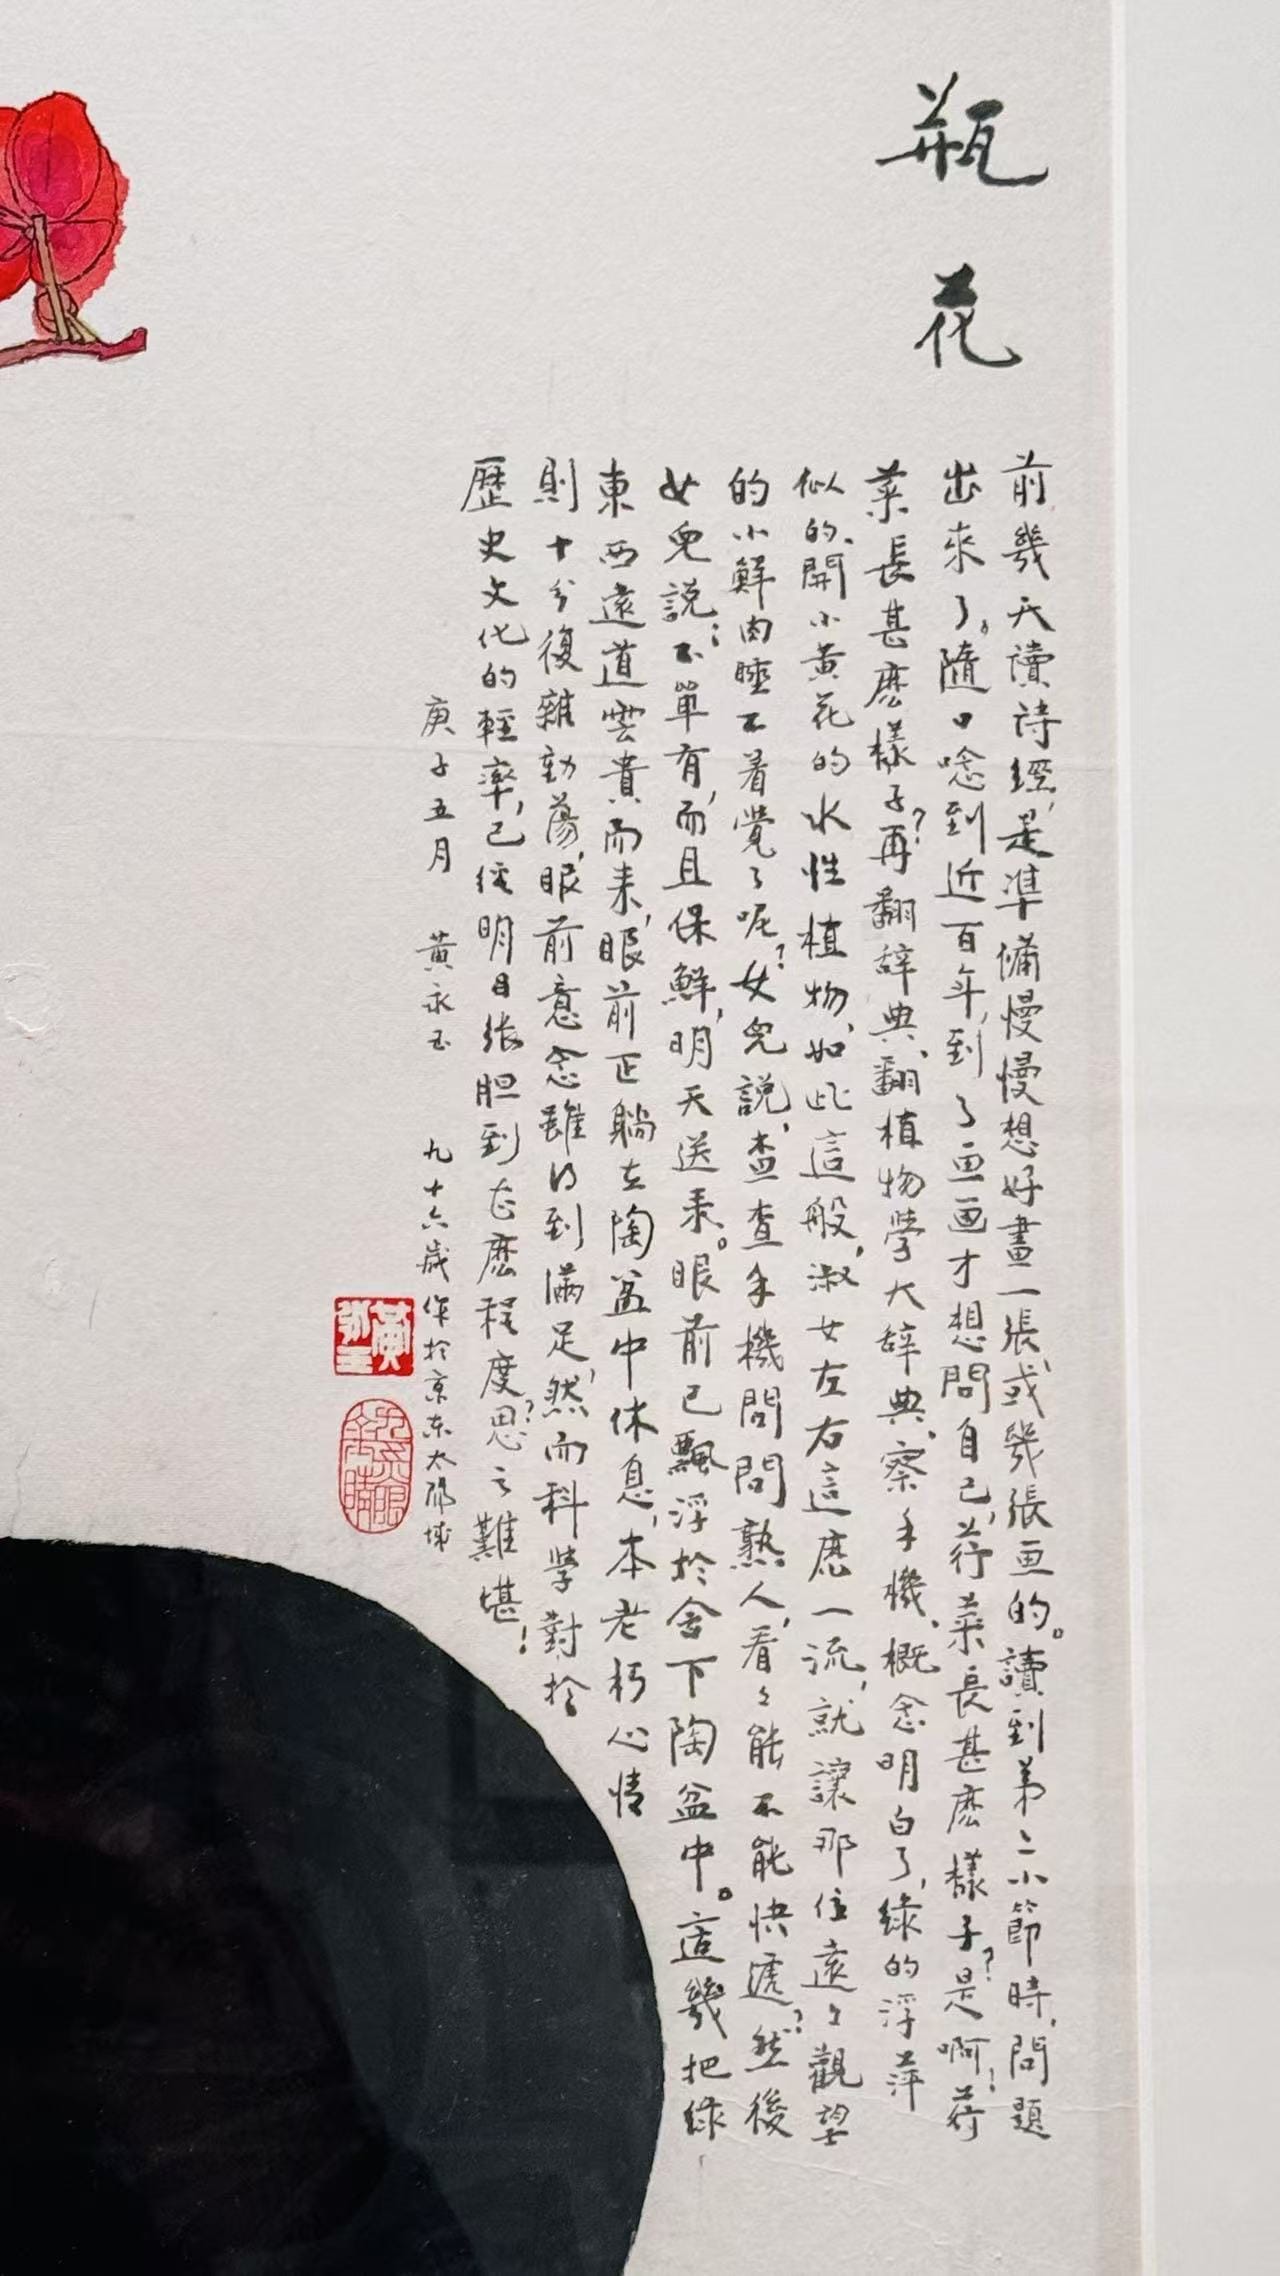 瓶花
前幾天讀詩經，是準備慢慢想好畫一張、或幾張画的。讀到第二小節時，問題
出來了。隨口唸到近百年，到了画画才想問自己，荇菜長甚麽樣子？是啊！荇
菜長甚麽樣子？再翻辞典、翻植物學大辞典、察手機、概念明白了，綠的浮萍
似的、開小黃花的水性植物，如此這般，淑女左右這麽一流，就讓那位遠々觀望
的小鮮肉睡不着覺了呢？女兒説，查查手機問問熟人，看々能不能快遞？然後
女兒説：不單有，而且保鮮，明天送来。眼前已飄浮於舍下陶盆中。這幾把綠
東西遠道雲貴而来，眼前正躺在陶盆中休息，本老朽心情
則十分復雜動蕩，眼前意念雖得到滿足，然而科學對於
歷史文化的輕率，已經明目張胆到甚麽程度？思之難堪！
庚子五月 黄永玉 九十六歲作於京東太陽城
黄永玉